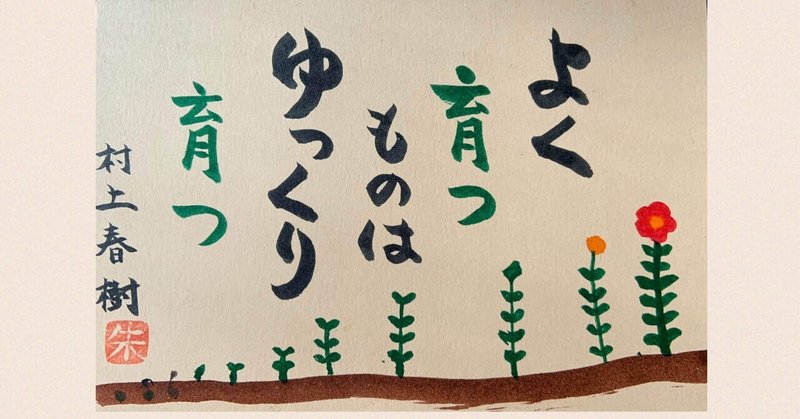 よく
育つ
ものは
ゆっくり
育つ
村上春樹
朱